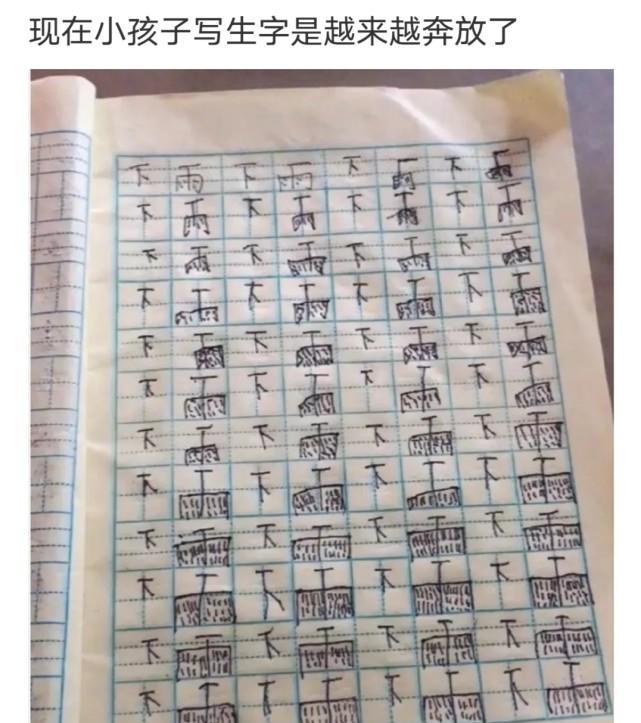 现在小孩子写生字是越来越奔放了
下 雨 下 雨 下 雨 下 雨
下 雨 下 雨 下 雨 下 雨
下 雨 下 雨 下 雨 下 雨
下 雨 下 雨 下 雨 下 雨
下 雨 下 雨 下 雨 下 雨
下 雨 下 雨 下 雨 下 雨
下 雨 下 雨 下 雨 下 雨
下 雨 下 雨 下 雨 下 雨
下 雨 下 雨 下 雨 下 雨
下 雨 下 雨 下 雨 下 雨
下 雨 下 雨 下 雨 下 雨
下 雨 下 雨 下 雨 下 雨